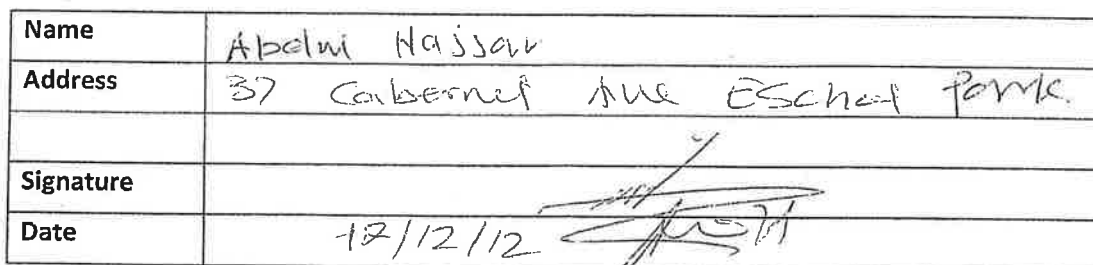 Name Abdni Hassan
Address 37 Cabernet Ave Eschol Park
Signature
Date 12/12/12